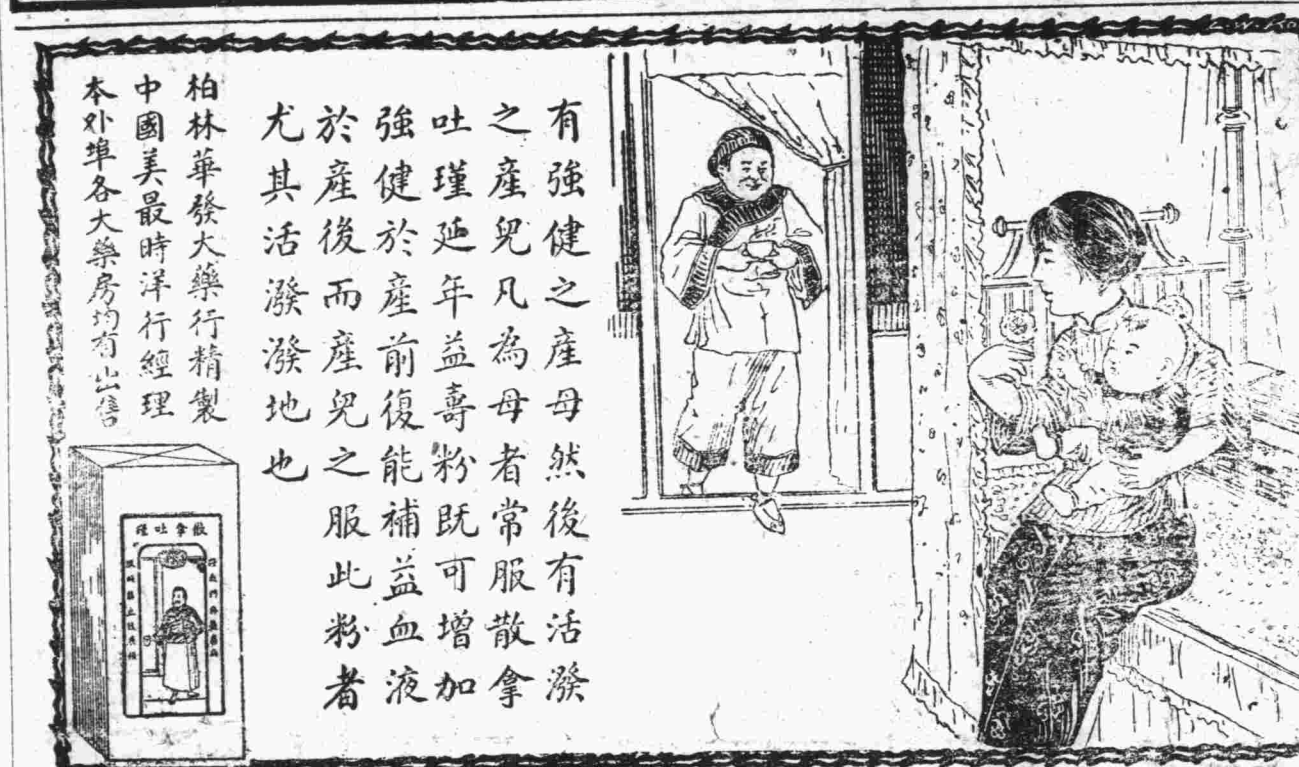 有強健之產母然後有活潑
之產兒凡為母者常服散拿
吐瑾延年益壽粉既可增加
強健於產前復能補益血液
於產後而產兒之服此粉者
尤其活潑潑地也
柏林華發大藥行精製
中國美最時洋行經理
本外埠各大藥房均有出售
散拿吐瑾